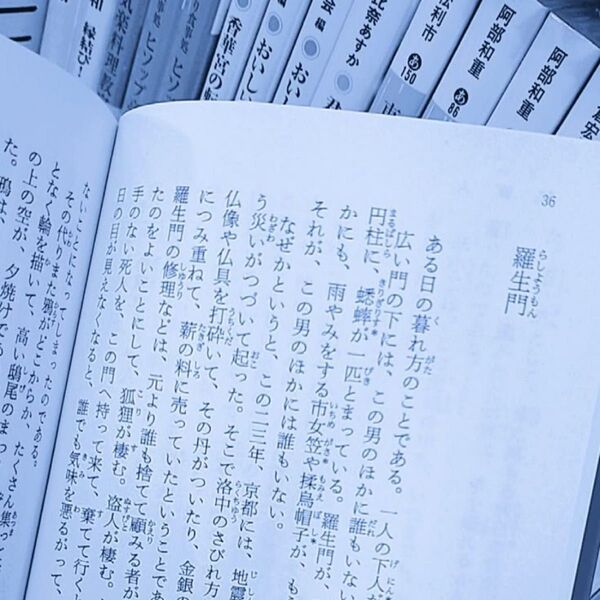 縁結び!
ヒソップ
香華宮の転
おいしい
おい
編
奈あすか
利市
あ
150
阿部和重
あ
86
阿部和重
36
羅生門
ある日の暮れ方のことである。一人の下人が
広い門の下には、この男のほかに誰もいない
円柱に、蟋蟀が一匹とまっている。羅生門が、
かにも、雨やみをする市女笠や揉烏帽子が、も
それが、この男のほかには誰もいない。
なぜかというと、この二三年、京都には、地震
う災いがつづいて起った。そこで洛中のさびれ方
仏像や仏具を打砕いて、その丹がついたり、金銀の
につみ重ねて、薪の料に売っていたということであ
羅生門の修理などは、元より誰も捨てて顧みる者が
たのをよいことにして、狐狸が棲む。盗人が棲む。
手のない死人を、この門へ持って来て、棄てて行く
日の目が見えなくなると、誰でも気味を悪るがって、
ないことになってしまったのである。
その代りまた鴉がどこからか、たくさん集
となく輪を描いて、高い鴟尾のまっ
の上の空が、夕焼けで
た。鴉は、